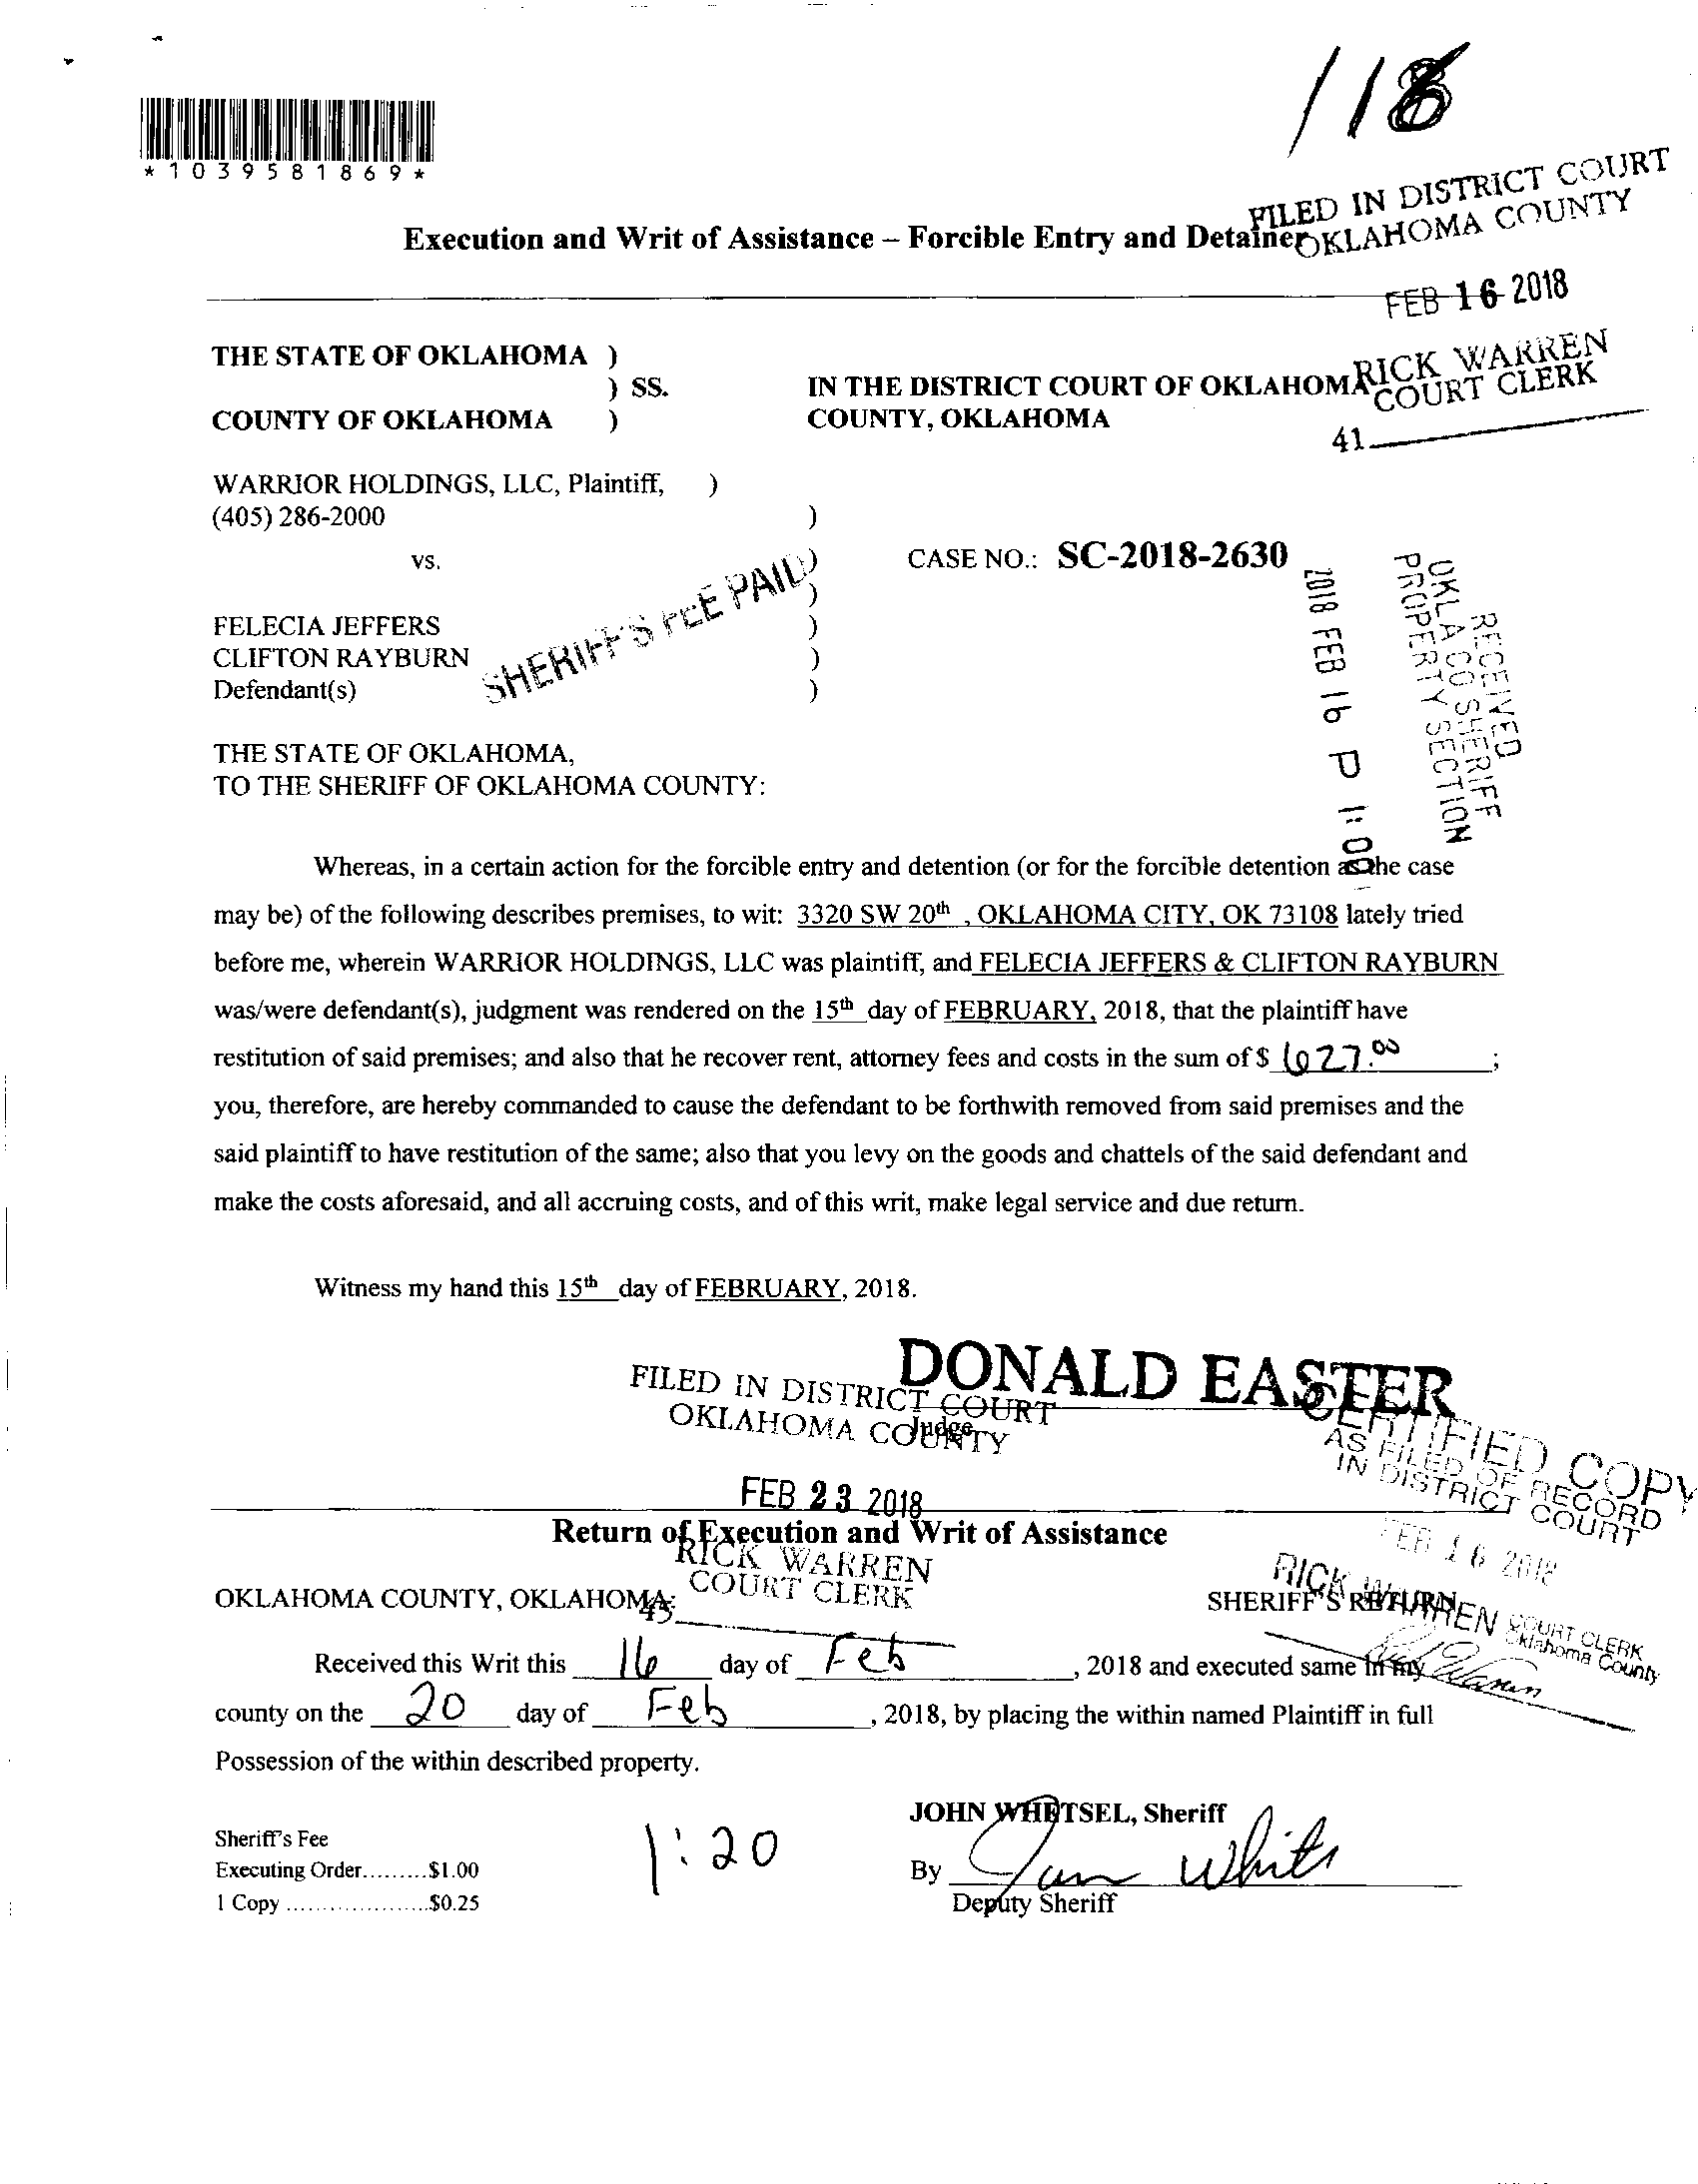 /18
*1039581869*
FILED IN DISTRICT COURT
OKLAHOMA COUNTY
Execution and Writ of Assistance – Forcible Entry and Detainer
FEB 16 2018
RICK WARREN
COURT CLERK
41
THE STATE OF OKLAHOMA )
) SS.
COUNTY OF OKLAHOMA )
IN THE DISTRICT COURT OF OKLAHOMA
COUNTY, OKLAHOMA
WARRIOR HOLDINGS, LLC, Plaintiff, )
(405) 286-2000 )
vs. )
CASE NO.: SC-2018-2630
)
FELECIA JEFFERS )
CLIFTON RAYBURN )
Defendant(s) )
SHERIFF'S FEE PAID
RECEIVED
OKLA CO SHERIFF
PROPERTY SECTION
2018 FEB 16 P 1:00
THE STATE OF OKLAHOMA,
TO THE SHERIFF OF OKLAHOMA COUNTY:
Whereas, in a certain action for the forcible entry and detention (or for the forcible detention as the case
may be) of the following describes premises, to wit: 3320 SW 20th , OKLAHOMA CITY, OK 73108 lately tried
before me, wherein WARRIOR HOLDINGS, LLC was plaintiff, and FELECIA JEFFERS & CLIFTON RAYBURN
was/were defendant(s), judgment was rendered on the 15th day of FEBRUARY, 2018, that the plaintiff have
restitution of said premises; and also that he recover rent, attorney fees and costs in the sum of $ 627.00 ;
you, therefore, are hereby commanded to cause the defendant to be forthwith removed from said premises and the
said plaintiff to have restitution of the same; also that you levy on the goods and chattels of the said defendant and
make the costs aforesaid, and all accruing costs, and of this writ, make legal service and due return.
Witness my hand this 15th day of FEBRUARY, 2018.
DONALD EASTER
Judge
FILED IN DISTRICT COURT
OKLAHOMA COUNTY
FEB 23 2018
RICK WARREN
COURT CLERK
43
CERTIFIED COPY
AS FILED OF RECORD
IN DISTRICT COURT
FEB 16 2018
RICK WARREN COURT CLERK
Oklahoma County
Rick Warren
Return of Execution and Writ of Assistance
OKLAHOMA COUNTY, OKLAHOMA:
SHERIFF'S RETURN
Received this Writ this 16 day of Feb , 2018 and executed same in my
county on the 20 day of Feb , 2018, by placing the within named Plaintiff in full
Possession of the within described property.
JOHN WHETSEL, Sheriff
Sheriff's Fee
Executing Order.........$1.00
1 Copy ....................$0.25
1:20
By
Deputy Sheriff